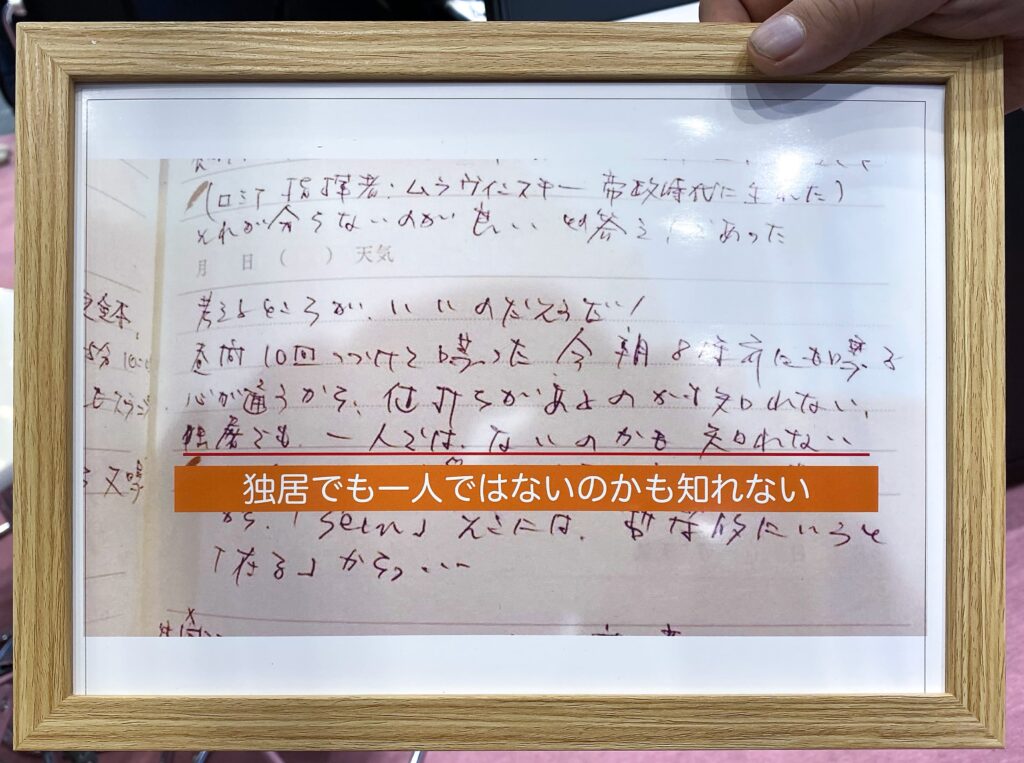 (ロシア 指揮者:ムラヴィンスキー 帝政時代に生れた)
それが分らないのが 良い 答え あった
月 日 ( ) 天気
考えるところが、いいのだそうだ!
10回 つづけて 喋った 今朝8時 喋る
心が通うから、値打ちがあるのかも知れない、
独居でも、一人では、ないのかも 知れない
独居でも一人ではないのかも知れない
から、「sein」そこには、哲学的にいうと
「在る」から、・・・
又 喋